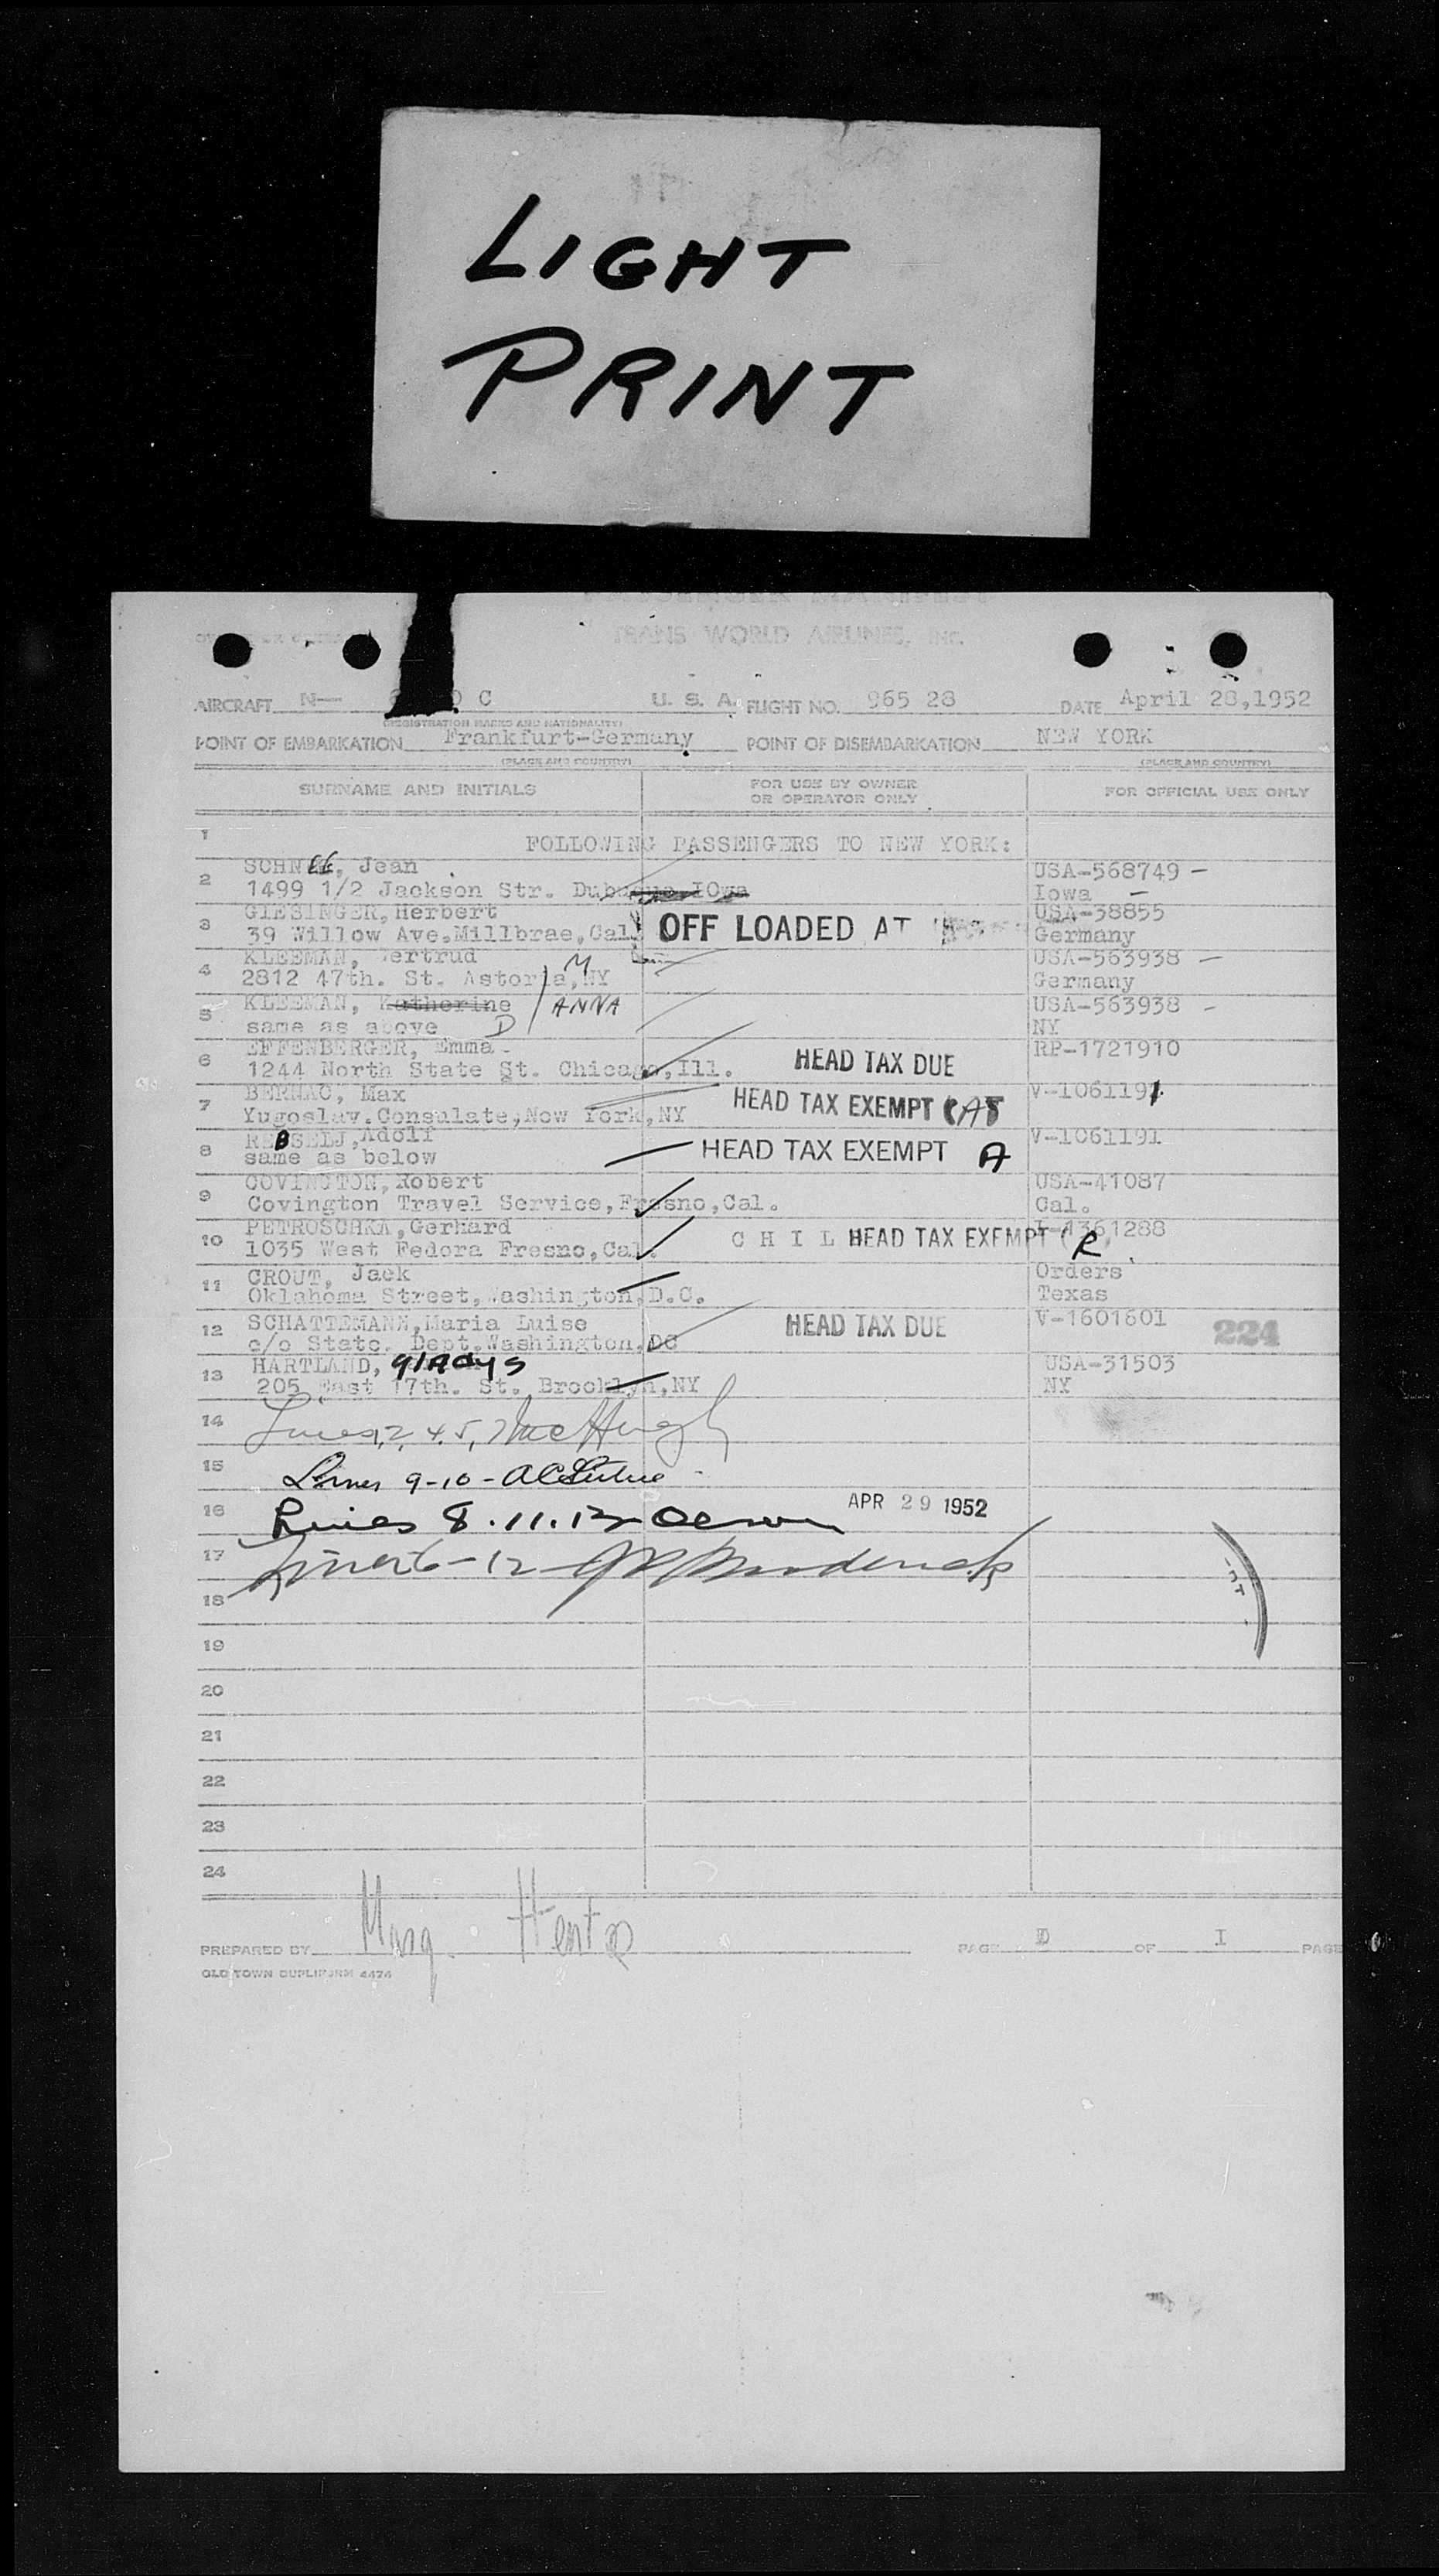 LIGHT
PRINT
TRANS WORLD AIRLINES, INC.
AIRCRAFT N— C U. S. A. FLIGHT NO. 965 28 DATE April 28,1952
(REGISTRATION MARKS AND NATIONALITY)
POINT OF EMBARKATION Frankfurt-Germany POINT OF DISEMBARKATION NEW YORK
(PLACE AND COUNTRY) (PLACE AND COUNTRY)
SURNAME AND INITIALS FOR USE BY OWNER OR OPERATOR ONLY FOR OFFICIAL USE ONLY
1 FOLLOWING PASSENGERS TO NEW YORK:
2 SCHNEE, Jean USA-568749 —
1499 1/2 Jackson Str. Dubuque IOwa Iowa —
3 GIESINGER, Herbert USA-38855
39 Willow Ave.Millbrae,Cal. OFF LOADED AT Germany
4 KLEEMAN, Gertrud M USA-563938 —
2812 47th. St. Astoria,NY Germany
5 KLEEMAN, Katherine / ANNA USA-563938 -
same as above D NY
6 EFFENBERGER, Emma RP-1721910
1244 North State St. Chicago,Ill. HEAD TAX DUE
7 BERNAC, Max HEAD TAX EXEMPT V-1061191
Yugoslav.Consulate,New York,NY
8 Adolf HEAD TAX EXEMPT A V-1061191
same as below
9 COVINGTON, Robert USA-41087
Covington Travel Service,Fresno,Cal. Cal.
10 PETROSCHKA,Gerhard C H I L HEAD TAX EXEMPT (R 1361288
1035 West Fedora Fresno,Cal.
11 CROUT, Jack Orders
Oklahoma Street,Washington,D.C. Texas
12 SCHATTEMANN,Maria Luise HEAD TAX DUE V-1601601
c/o State. Dept.Washington,DC 224
13 HARTLAND, glAdys USA-31503
205 East 17th. St. Brooklyn,NY NY
14 Lines, 2, 4, 5, McHugh
15 Lines 9-10 -
16 Lines 8.11.13 APR 29 1952
17 Lines 6-12
18
19
20
21
22
23
24
PREPARED BY Marg. PAGE D OF I PAGE
OLD TOWN DUPLIFORM 4474